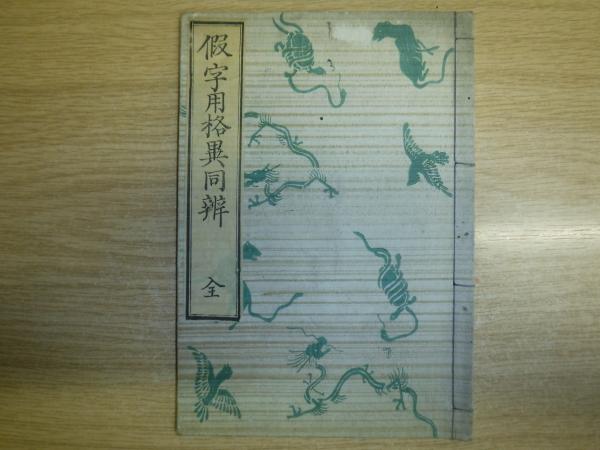 假字用格異同辨 全